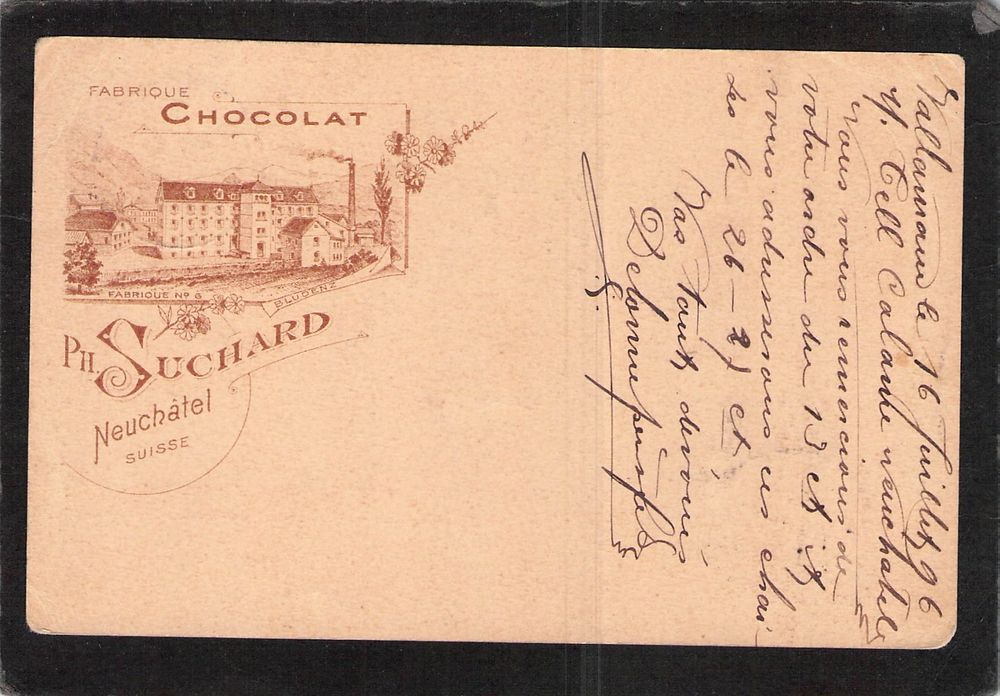 FABRIQUE
CHOCOLAT
FABRIQUE Nº 6
BLUDENZ
PH. SUCHARD
Neuchâtel
SUISSE
le 16 Juillet 96
Tell Calame neuchatel
Nous vous remercions de
votre ordre du 13 ct et
vous adresserons ces chai
les le 26 – 27 ct
Vos tout dévoués
Delorme père & fils